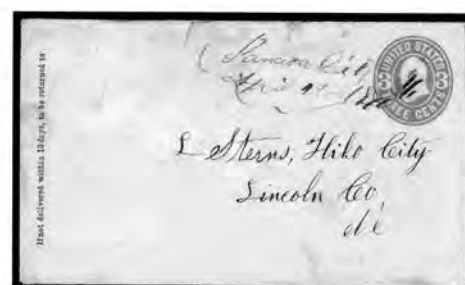 If not delivered within 10 days, to be returned to
City
April
UNITED STATES
3 3
THREE CENTS
L Sterns, Hiko City
Lincoln Co,